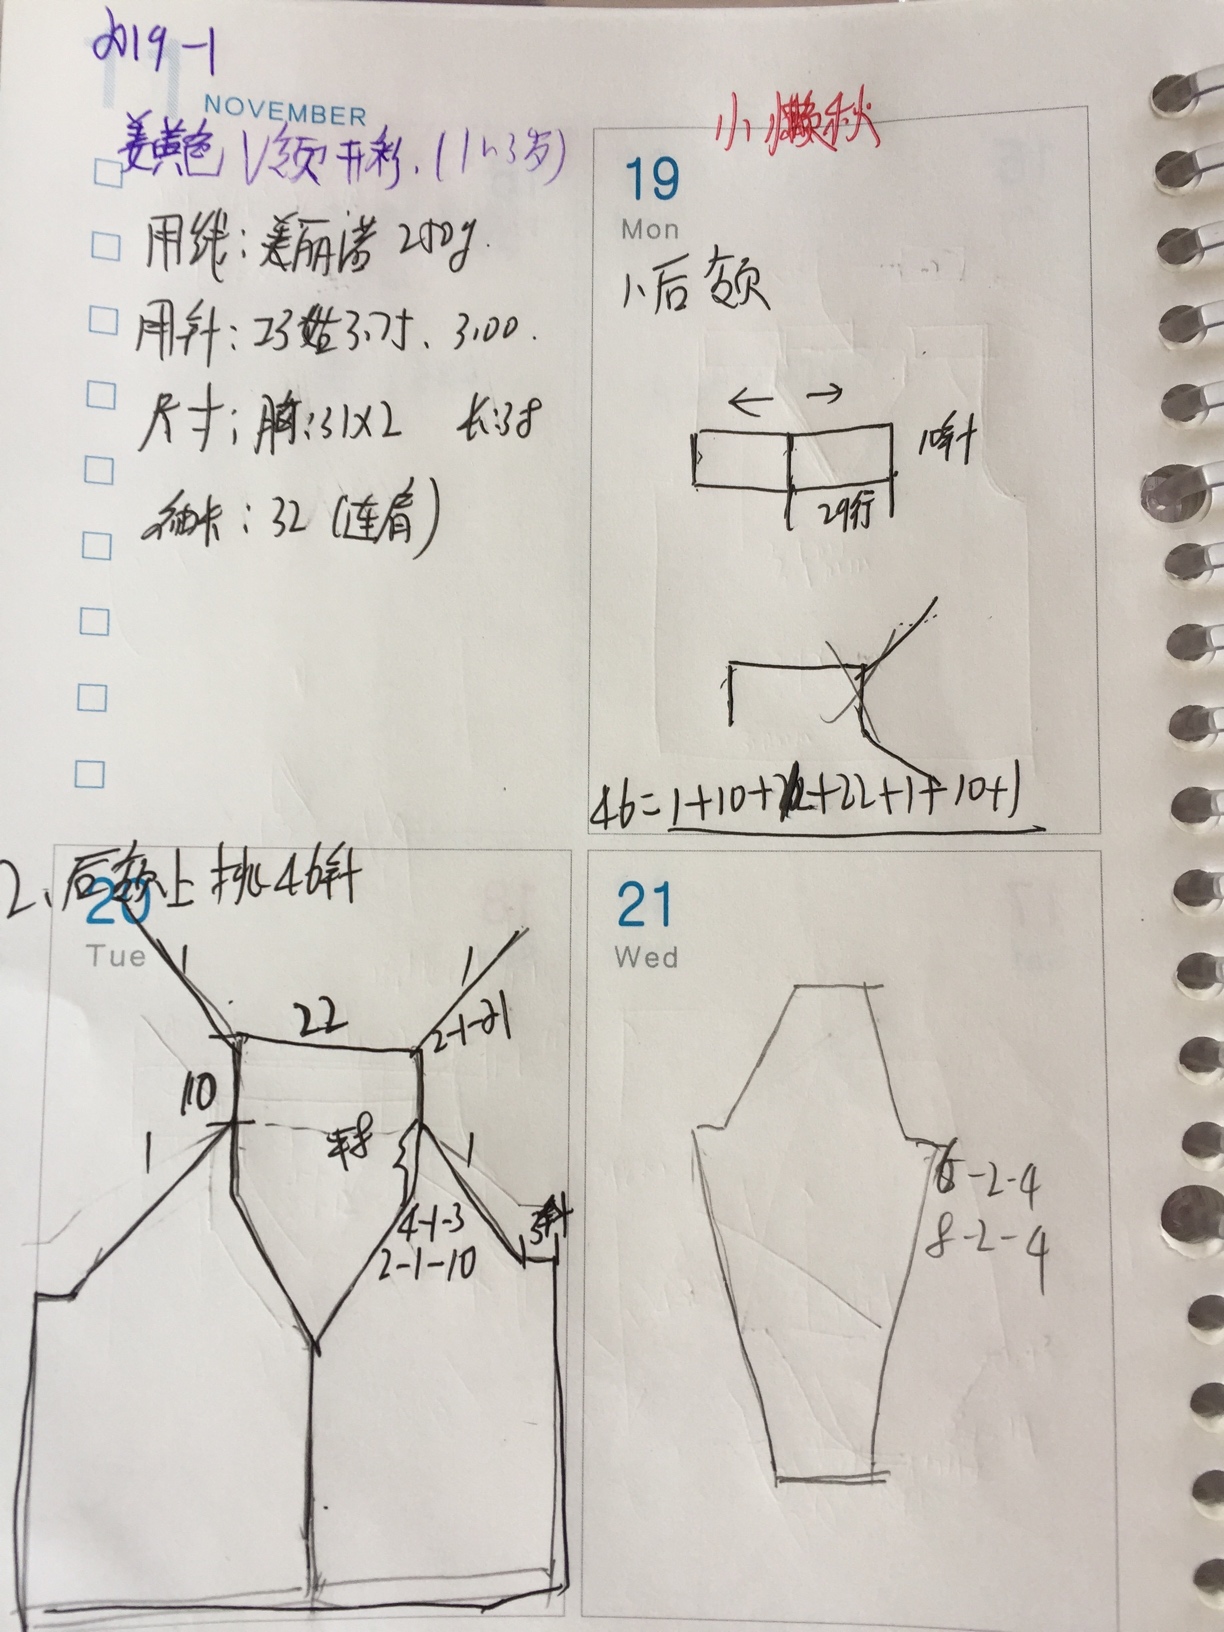 2019-1
NOVEMBER
姜黄色V领开衫.(1~3岁)
用线:美丽诺 250g.
用针:23娃3.75、3.00.
尺寸:胸:31x2 长:38
袖长:32(连肩)
小懒秋
19
Mon
1、后领
← →
10针
29行
46=1+10+1+22+1+10+1
2、后领上挑46针
20
Tue
1
1
22
2-1-21
10
1
1
3针
4-1-3
2-1-10
21
Wed
6-2-4
8-2-4